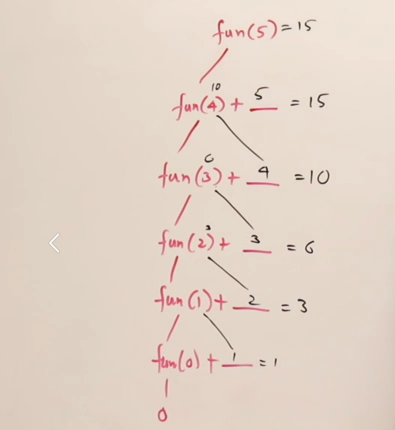 fun(5) = 15
10
fun(4) + 5 = 15
6
fun(3) + 4 = 10
3
fun(2) + 3 = 6
fun(1) + 2 = 3
fun(0) + 1 = 1
0